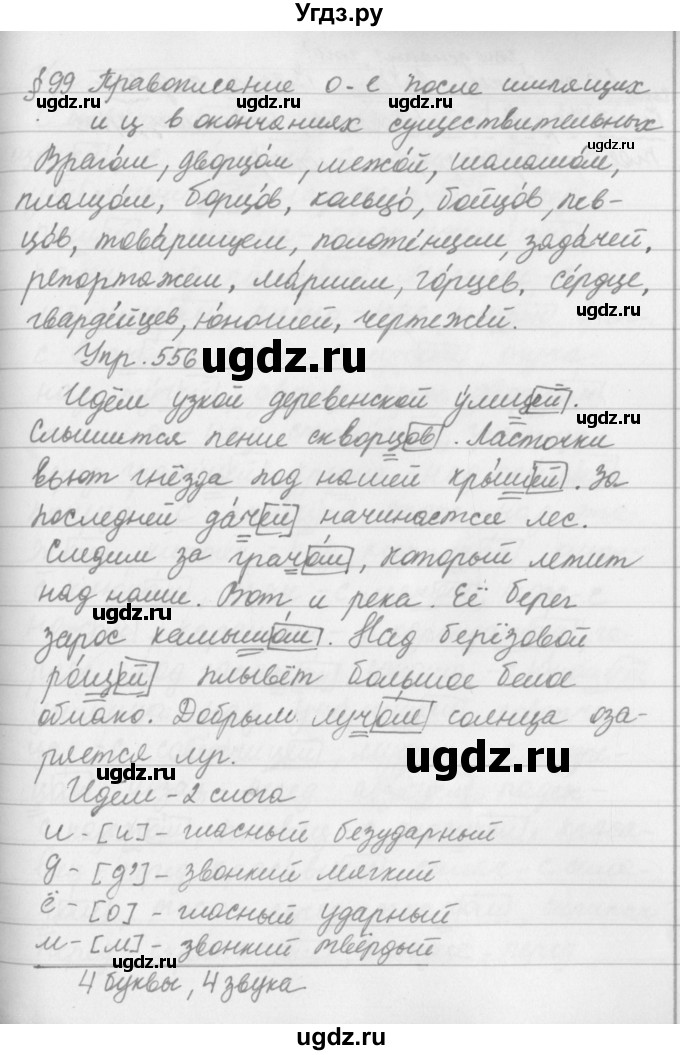 Угдз.ру
§99 Правописание о-е после шипящих
и ц в окончаниях существительных
Врагóм, дворцóм, межóй, шалашóм,
плащóм, борцóв, кольцó, бойцóв, пев-
цóв, товáрищем, полотéнцем, задáчей,
репортáжем, мáршем, гóрцев, сéрдце,
гвардéйцев, ю́ношей, чертежéй.
Упр. 556
Идём узкой деревенской у́лицей.
Слышится пение скворцов. Ласточки
вьют гнёзда под нашей кры́шей. За
последней дáчей начинается лес.
Следим за грачóм, который летит
над нами. Вот и река. Её берег
зарос камышóм. Над берёзовой
рóщей плывёт большое белое
облако. Добрым лучóм солнца оза-
ряется луг.
Идём - 2 слога
и - [и] - гласный безударный
д - [д'] - звонкий мягкий
ё - [о] - гласный ударный
м - [м] - звонкий твёрдый
4 буквы, 4 звука
ugdz.ru
ugdz.ru
ugdz.ru
ugdz.ru
ugdz.ru
ugdz.ru
ugdz.ru
ugdz.ru
ugdz.ru
ugdz.ru
ugdz.ru
ugdz.ru
ugdz.ru
ugdz.ru